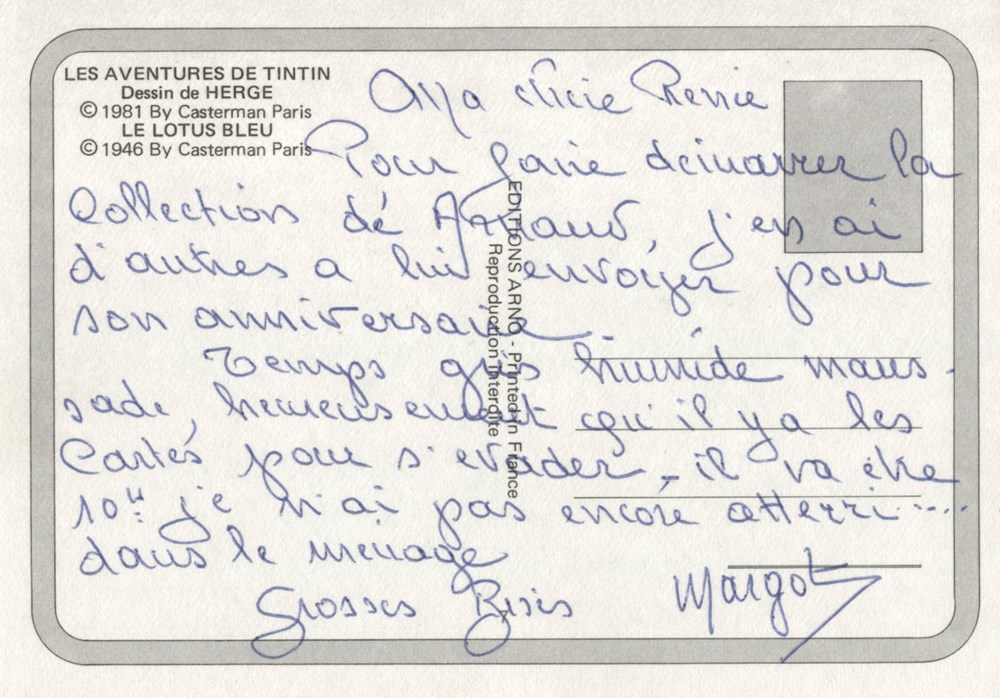 LES AVENTURES DE TINTIN
Dessin de HERGE
© 1981 By Casterman Paris
LE LOTUS BLEU
© 1946 By Casterman Paris
Ma chère Renée
Pour faire démarrer la
Collection de Arnaud, j'en ai
d'autres a lui envoyer pour
son anniversaire
Temps gris humide maus-
sade, heureusement qu'il y a les
Cartes pour s'evader - il va être
10H je n'ai pas encore atterri....
dans le menage
Grosses Bises
Margot
EDITIONS ARNO - Printed in France
Reproduction Interdite